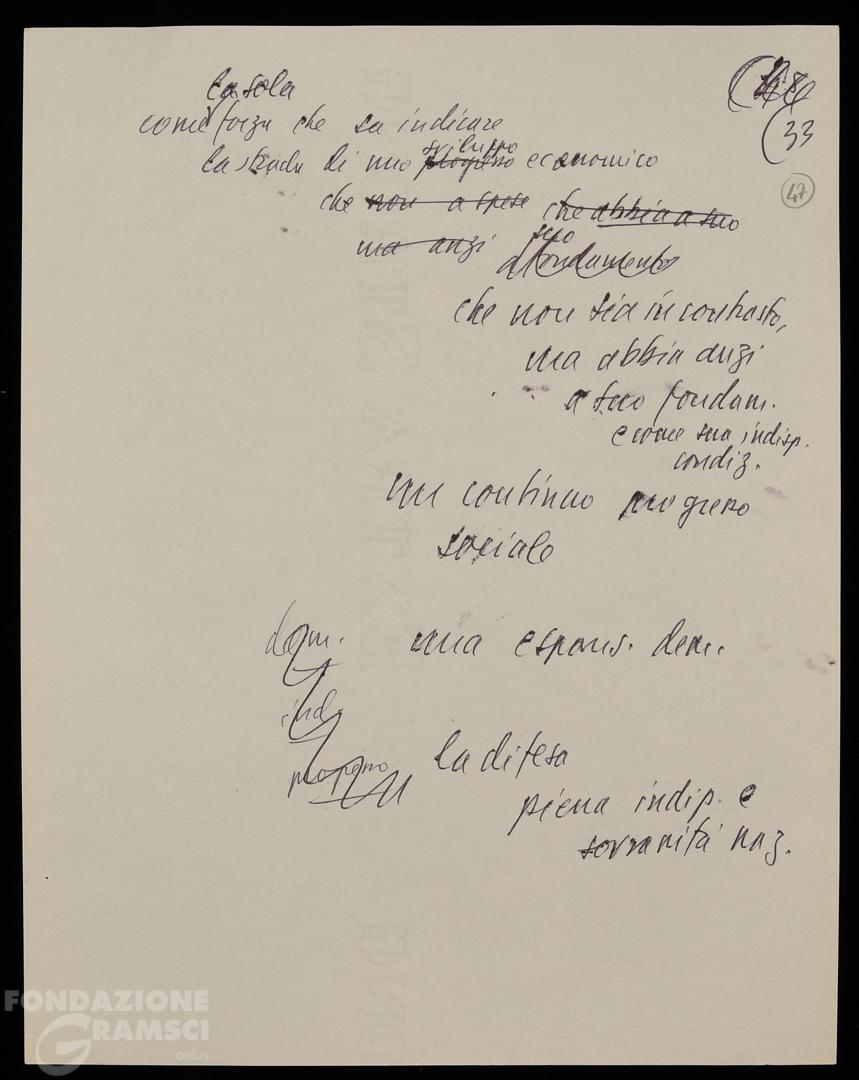 la sola
come forza che sa indicare
33
sviluppo
la strada di uno progresso economico
47
che non a spese che abbia a suo
ma anzi suo
a fondamento
che non sia in contrasto,
ma abbia anzi
a suo fondam.
e come sua indisp.
condiz.
un continuo progresso
sociale
dem. una espans. dem.
ind.
progresso la difesa
piena indip. e
sovranità naz.
FONDAZIONE
GRAMSCI
onlus